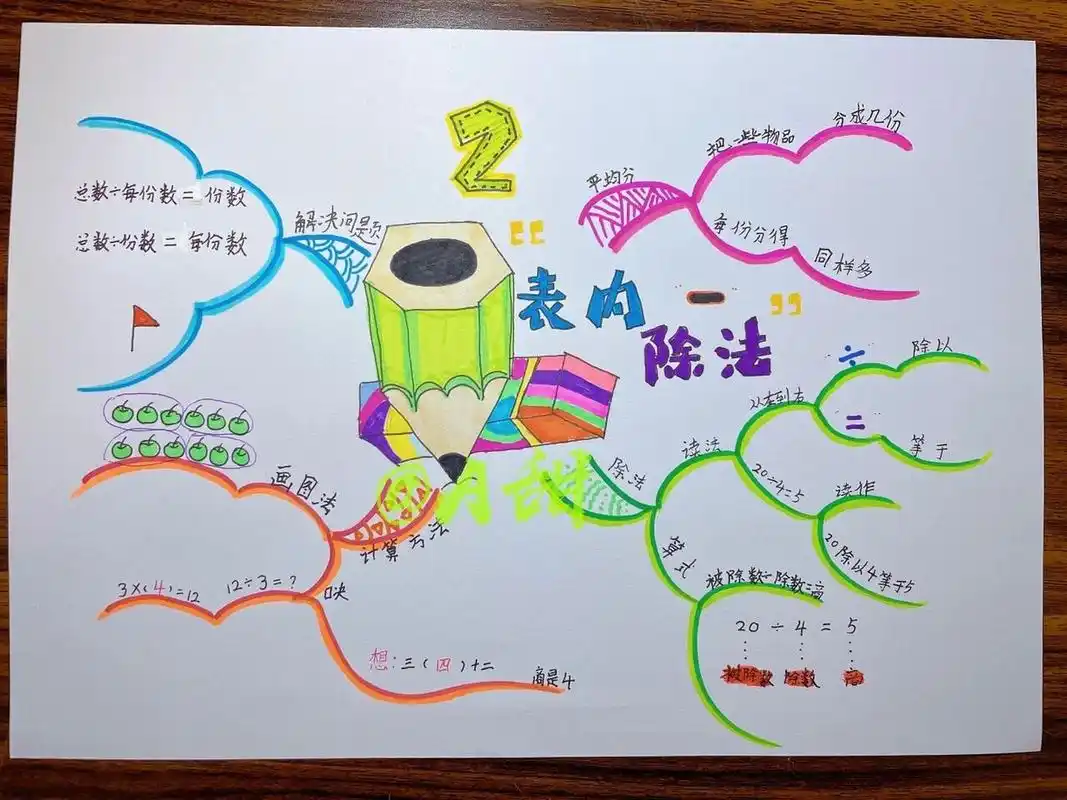 2
“表内
除法”
解决问题
总数÷每份数=份数
总数÷份数=每份数
平均分
把一些物品
分成几份
每份分得
同样多
除法
读法
从左到右
÷
除以
=
等于
20÷4=5
读作
20除以4等于5
算式
被除数÷除数=商
20÷4=5
被除数 除数 商
计算方法
画图法
12÷3=?
3×(4)=12
想:三(四)十二
商是4
月甜